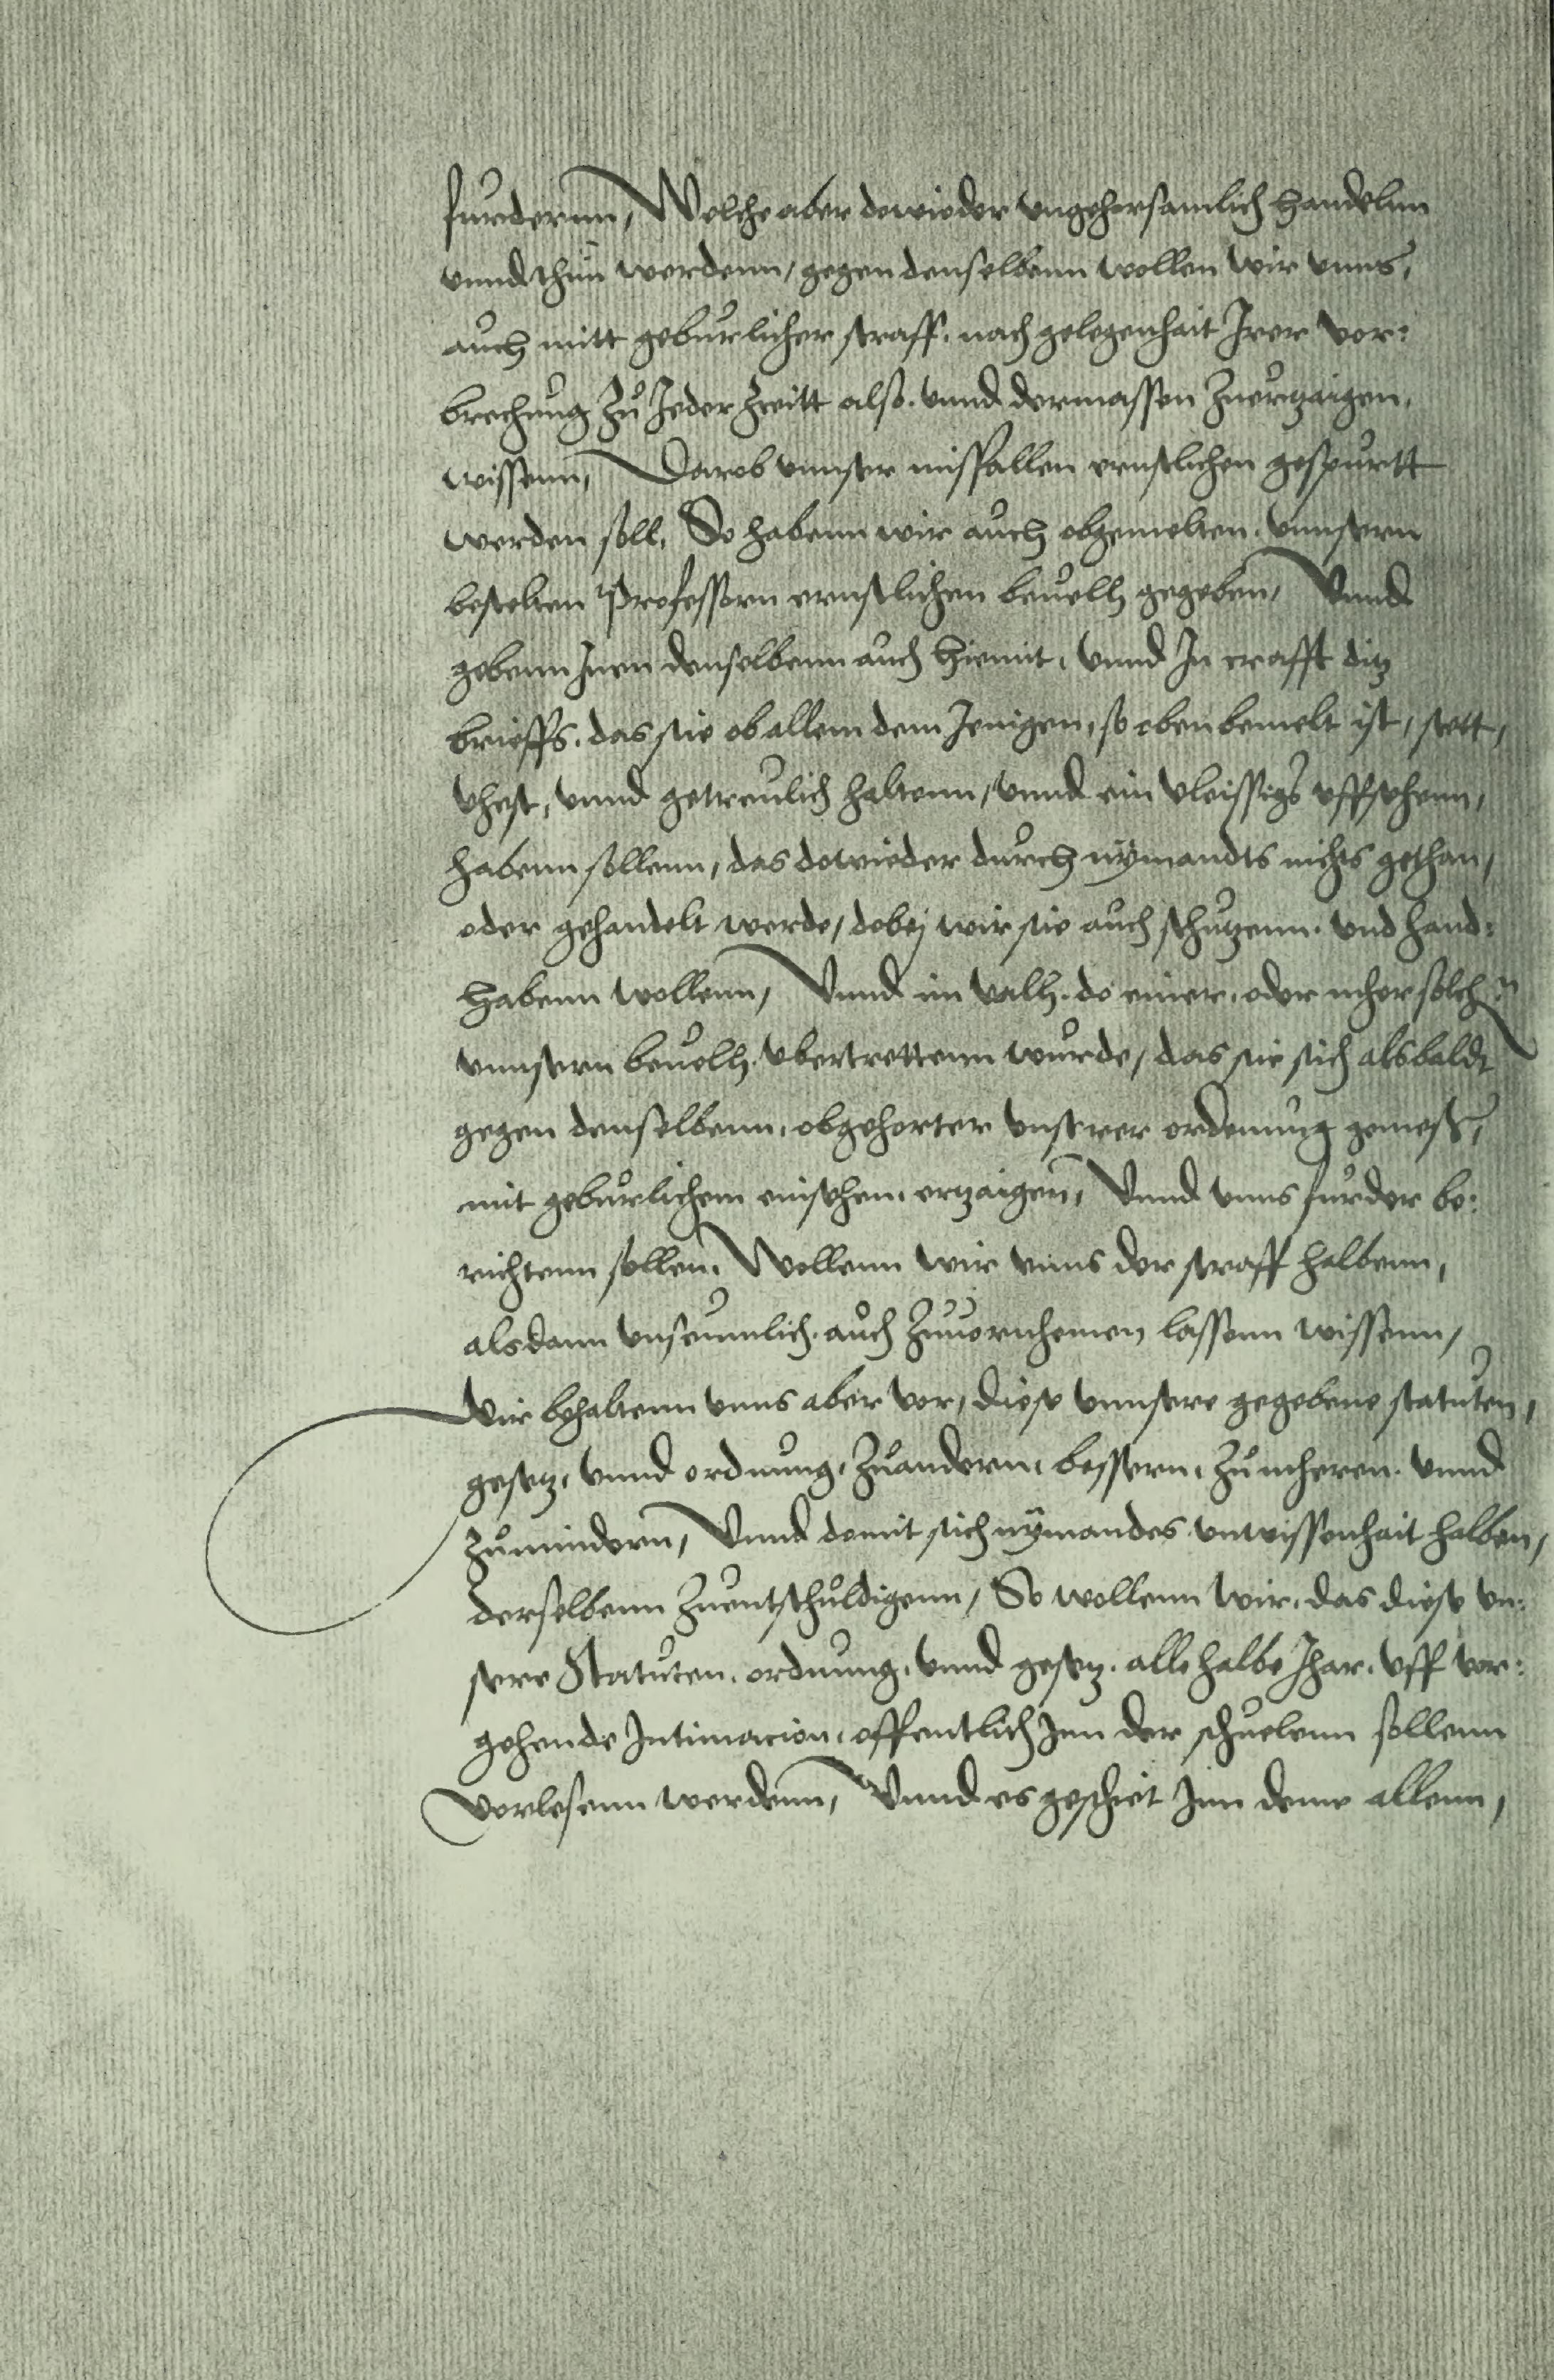 furderenn, Welche aber dowieder vngehorsamlich handelnn
vnnd thun werdenn, gegen denselbenn wollen wir vnns,
auch mitt geburlicher straff, nach gelegenhait Irer vor:
brechung zu Jeder zeitt also. vnnd dermassen zuertzaigen,
wissenn, Darob vnnser misfallen ernstlichen gespurtt
werden soll, So habenn wir auch obgemelten, vnnsern
bestelten Professorn ernstlichen beuelh gegeben, Vnnd
gebenn Inen denselbenn auch hiemit, vnnd In crafft ditz
brieffs, das sie ob allem dem Jenigen, so oben bemelt ist, stett,
vhest, vnnd getreulich haltenn, vnnd ein vleissigs vffsehenn,
habenn sollenn, das dowieder durch nÿmandts nichts gethan,
oder gehandelt werde, dobej wir sie auch schutzenn. vnd hand:
habenn wollenn, Vnnd im valh, do einer, oder meher solchn
vnnsern beuelh. vbertrettenn wurde, das sie sich alsbaldt
gegen denselbenn, obgehorter vnserer ordenung gemess,
mit geburlichem einsehen, ertzaigen, Vnnd vnns furder be:
richtenn sollen. Wollenn wir vnns der straff halbenn,
alsdann vnseumlich. auch zuuornhemen lassenn wissenn,
Wir behaltenn vnns aber vor, diese vnnsere gegebene statuten,
gesetz, vnnd ordnung, zuandern, bessern, zu meheren. vnnd
zumindern, Vnnd domit sich nÿmandes vnwissenhait halben,
derselbenn zuentschuldigenn, So wollenn wir, das diese vn:
sere Statuten, ordnung, vnnd gesetz. alle halbe Jhar, vff vor:
gehende Intimacion, offentlich Inn der schuelenn sollenn
vorlesenn werdenn, Vnnd es geschiet Inn deme allenn,